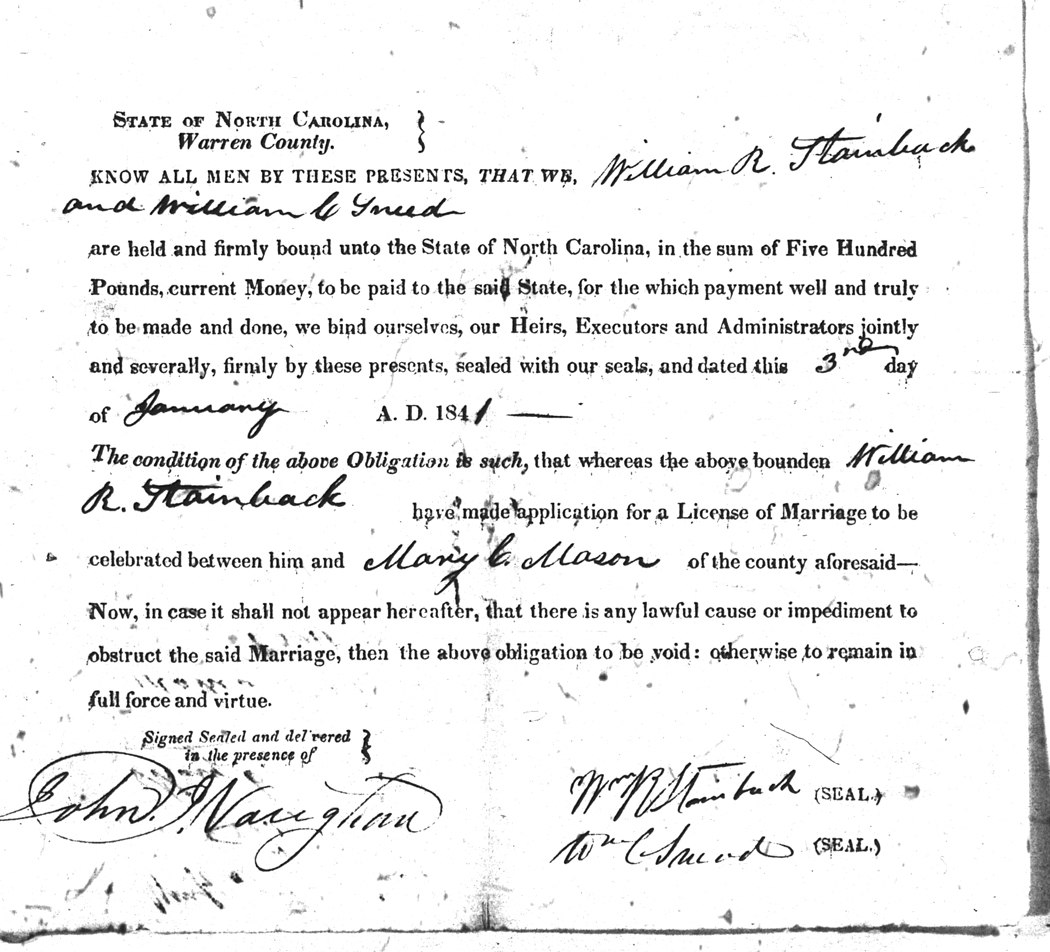 STATE OF NORTH CAROLINA,
Warren County.
KNOW ALL MEN BY THESE PRESENTS, THAT WE, William R. Stainback
and William C Sneed
are held and firmly bound unto the State of North Carolina, in the sum of Five Hundred
Pounds, current Money, to be paid to the said State, for the which payment well and truly
to be made and done, we bind ourselves, our Heirs, Executors and Administrators jointly
and severally, firmly by these presents, sealed with our seals, and dated this 3rd day
of January A. D. 1841 —
The condition of the above Obligation is such, that whereas the above bounden William
R. Stainback have made application for a License of Marriage to be
celebrated between him and Mary C. Mason of the county aforesaid—
Now, in case it shall not appear hereafter, that there is any lawful cause or impediment to
obstruct the said Marriage, then the above obligation to be void: otherwise to remain in
full force and virtue.
Signed Sealed and delivered
in the presence of
John J Vaughan
Wm R Stainback (SEAL.)
Wm C Sneed (SEAL.)